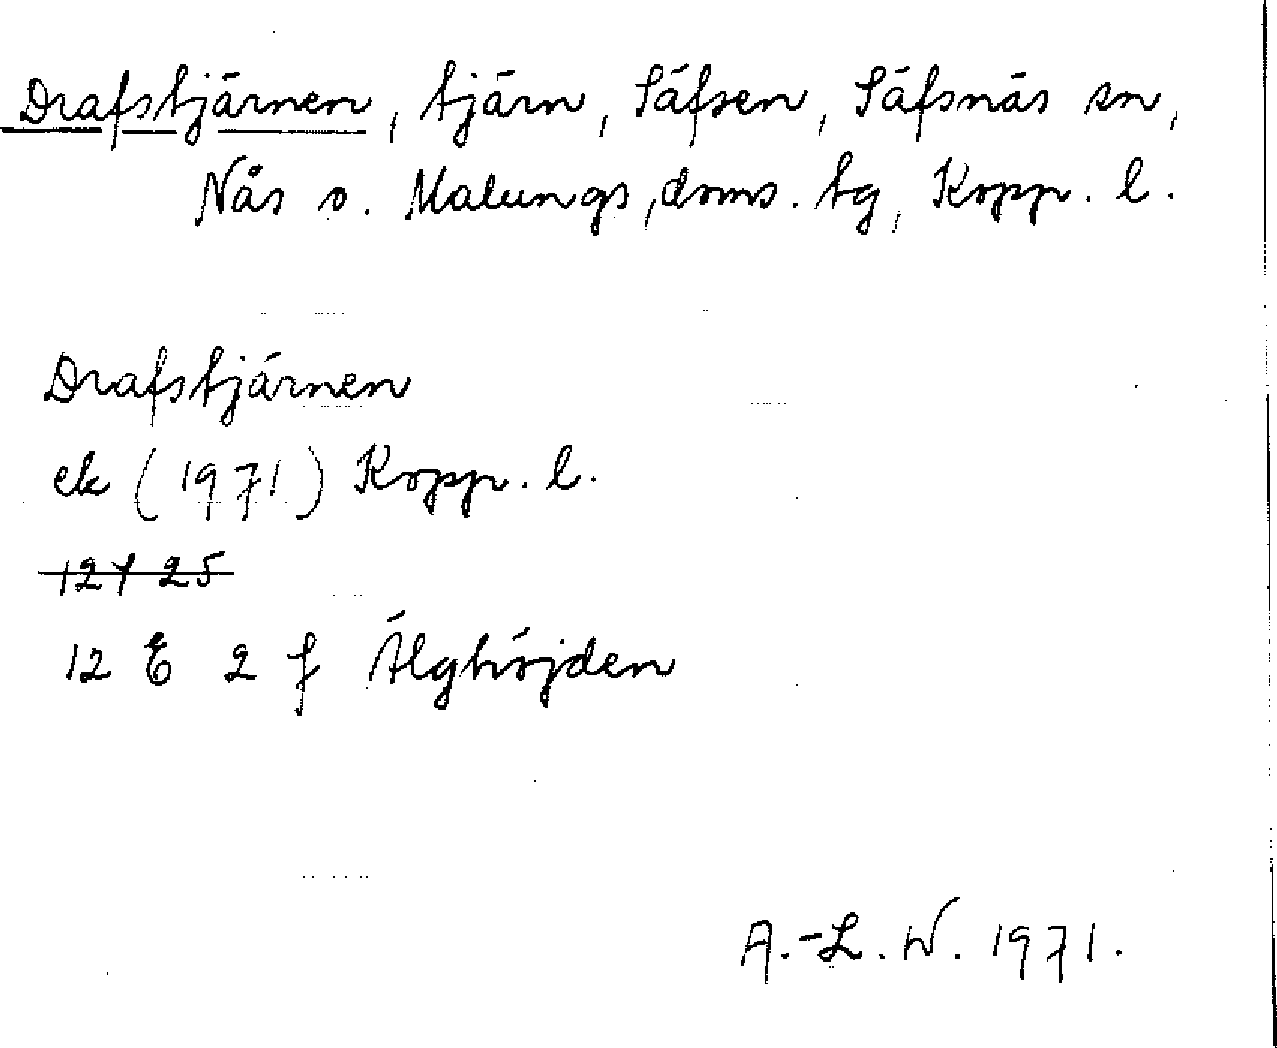 Drafstjärnen, tjärn, Säfsen, Säfsnäs sn,
Nås o. Malungs, doms. tg, Kopp. l.
Drafstjärnen
ek (1971) Kopp. l.
12 E 2 f Älghöjden
A.-L. W. 1971.